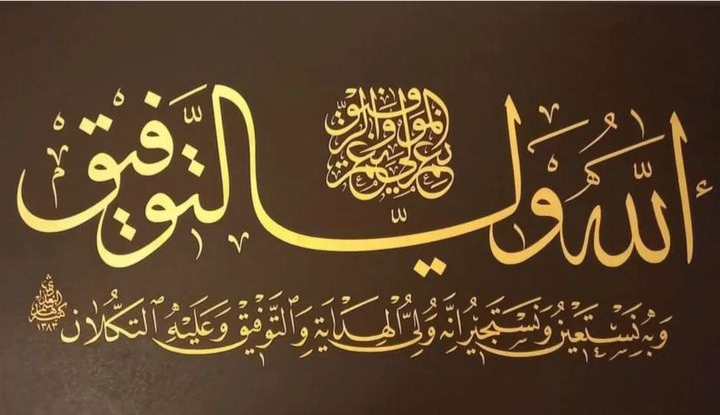 اَللهُ وَلِيُّ التَّوفيق
وَبِهِ نَسْتَعِينُ وَنَسْتَجِيرُ اِنَّهُ وَلِيُّ الْهِدَايَةِ وَالتَّوْفِيقِ وَعَلَيْهِ التُّكْلَان
١٣٨٣